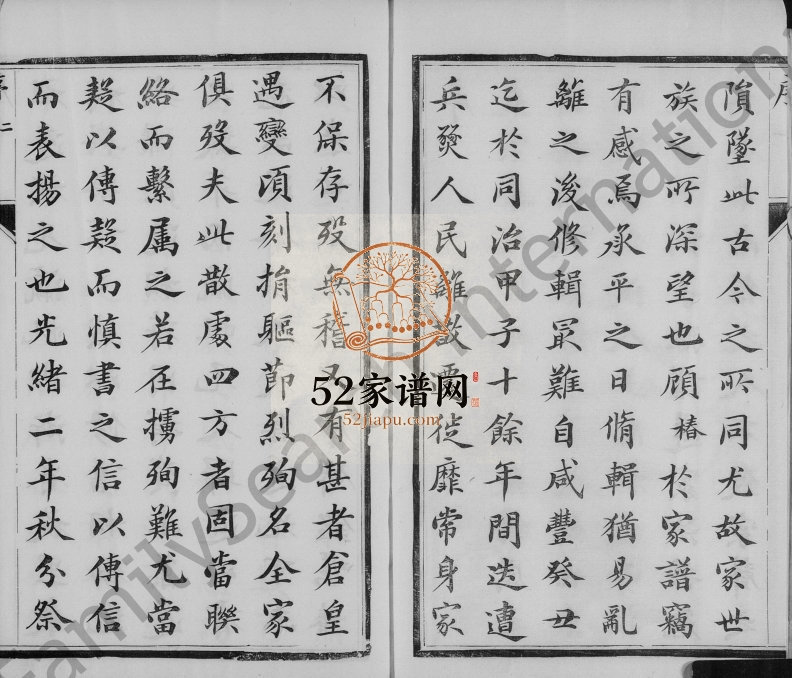 隕墜此古今之所同尤故家世
族之所深望也顧椿於家譜竊
有感焉承平之日脩輯猶易亂
離之後修輯最難自咸豐癸丑
迄於同治甲子十餘年間迭遭
兵燹人民離散遷徙靡常身家
不保存歿無稽又有甚者倉皇
遇變頃刻捐軀節烈殉名全家
俱歿夫此散處四方者固當聯
絡而繫属之若在擄殉難尤當
疑以傳疑而慎書之信以傳信
而表揚之也光緒二年秋分祭
序
二
52家谱网
52jiapu.com
FamilySearch International